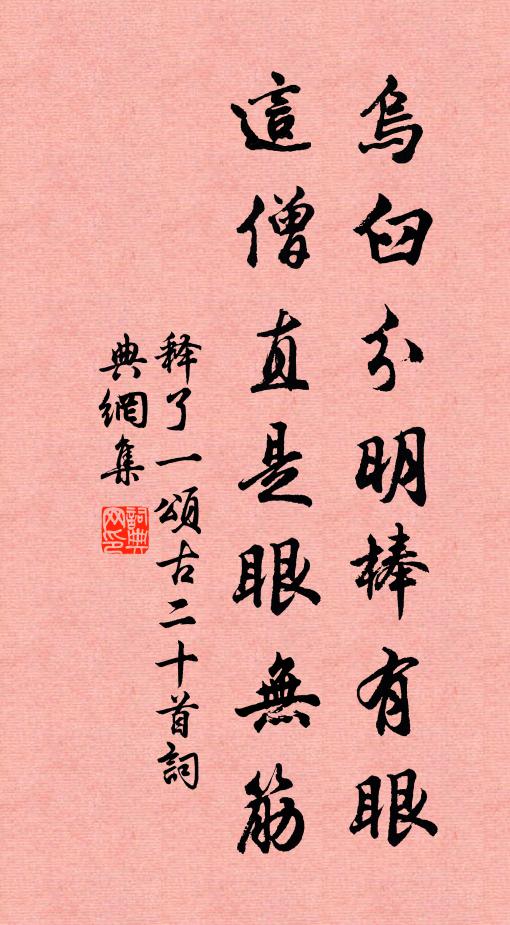 烏臼分明棒有眼
這僧直是眼無筋
释了一頌古二十首詞
典網集
詞典
网印